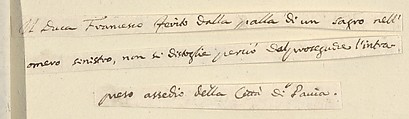 Il Duca Francesco ferito dalla palla di un sagro nell'
omero sinistro, non si distoglie perciò dal proseguire l'intra-
preso assedio della Città di Pavia.